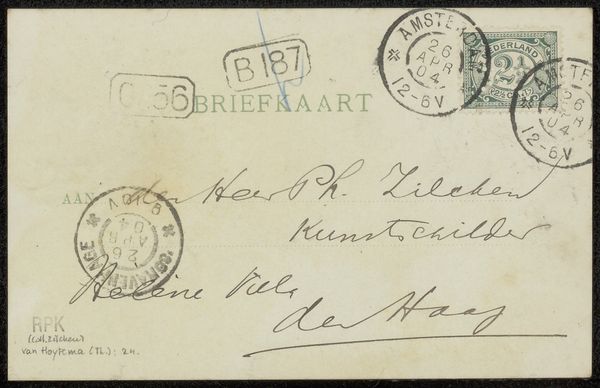 B 187
BRIEFKAART
AMSTERDAM
26
APR
04
12-6V
NEDERLAND
2½
AMSTE
26
APR
04
12-6V
AAN den Heer Ph. Zilcken
Kunstschilder
Hélène Villa
den Haag
'SGRAVENHAGE
26
APR
04
RPK
(coll. Zilcken)
van Hoytema (Th.): 24.